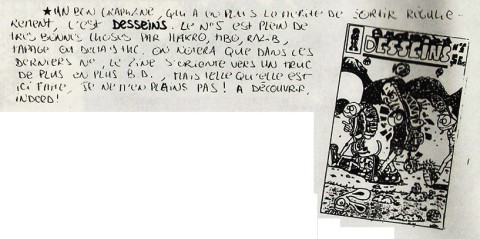 ★ UN BON GRAPHZINE, QUI A EN PLUS LE MERITE DE SORTIR REGULIE-
REMENT, C'EST DESSEINS. LE N°5 EST PLEIN DE
TRES BONNES CHOSES PAR MAKRO, MBO,
ON NOTERA QUE DANS CES
DERNIERS N°, LE ZINE S'ORIENTE VERS UN TRUC
DE PLUS EN PLUS B.D., MAIS TELLE QU'ELLE EST
ICI FAITE, JE NE M'EN PLAINS PAS! A DECOUVRIR,
INDEED!
DESSEINS